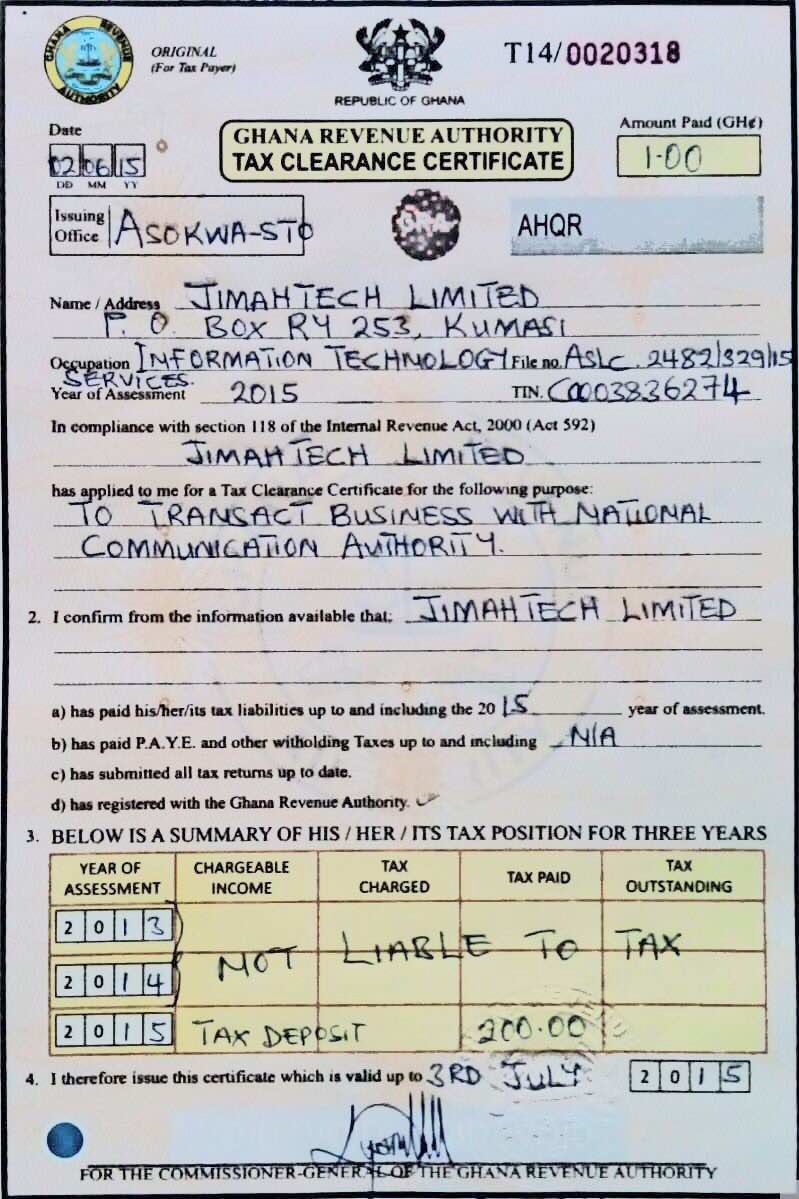 GHANA REVENUE AUTHORITY
ORIGINAL
(For Tax Payer)
REPUBLIC OF GHANA
T14/0020318
Date
02 06 15
DD MM YY
GHANA REVENUE AUTHORITY
TAX CLEARANCE CERTIFICATE
Amount Paid (GH¢)
1-00
Issuing Office ASOKWA-STO
GRA
AHQR
Name / Address JIMAHTECH LIMITED
P. O. BOX RY 253, KUMASI
Occupation INFORMATION TECHNOLOGY File no. ASLC. 2482/329/15
SERVICES.
Year of Assessment 2015 TIN. C0003836274
In compliance with section 118 of the Internal Revenue Act, 2000 (Act 592)
JIMAHTECH LIMITED
has applied to me for a Tax Clearance Certificate for the following purpose:
TO TRANSACT BUSINESS WITH NATIONAL
COMMUNICATION AUTHORITY.
2. I confirm from the information available that: JIMAHTECH LIMITED
a) has paid his/her/its tax liabilities up to and including the 2015 year of assessment.
b) has paid P.A.Y.E. and other witholding Taxes up to and including N/A
c) has submitted all tax returns up to date.
d) has registered with the Ghana Revenue Authority. ✓
3. BELOW IS A SUMMARY OF HIS / HER / ITS TAX POSITION FOR THREE YEARS
YEAR OF ASSESSMENT CHARGEABLE INCOME TAX CHARGED TAX PAID TAX OUTSTANDING
2013
NOT LIABLE TO TAX
2014
2015 TAX DEPOSIT 200.00
4. I therefore issue this certificate which is valid up to 3RD JULY 2015
FOR THE COMMISSIONER-GENERAL OF THE GHANA REVENUE AUTHORITY